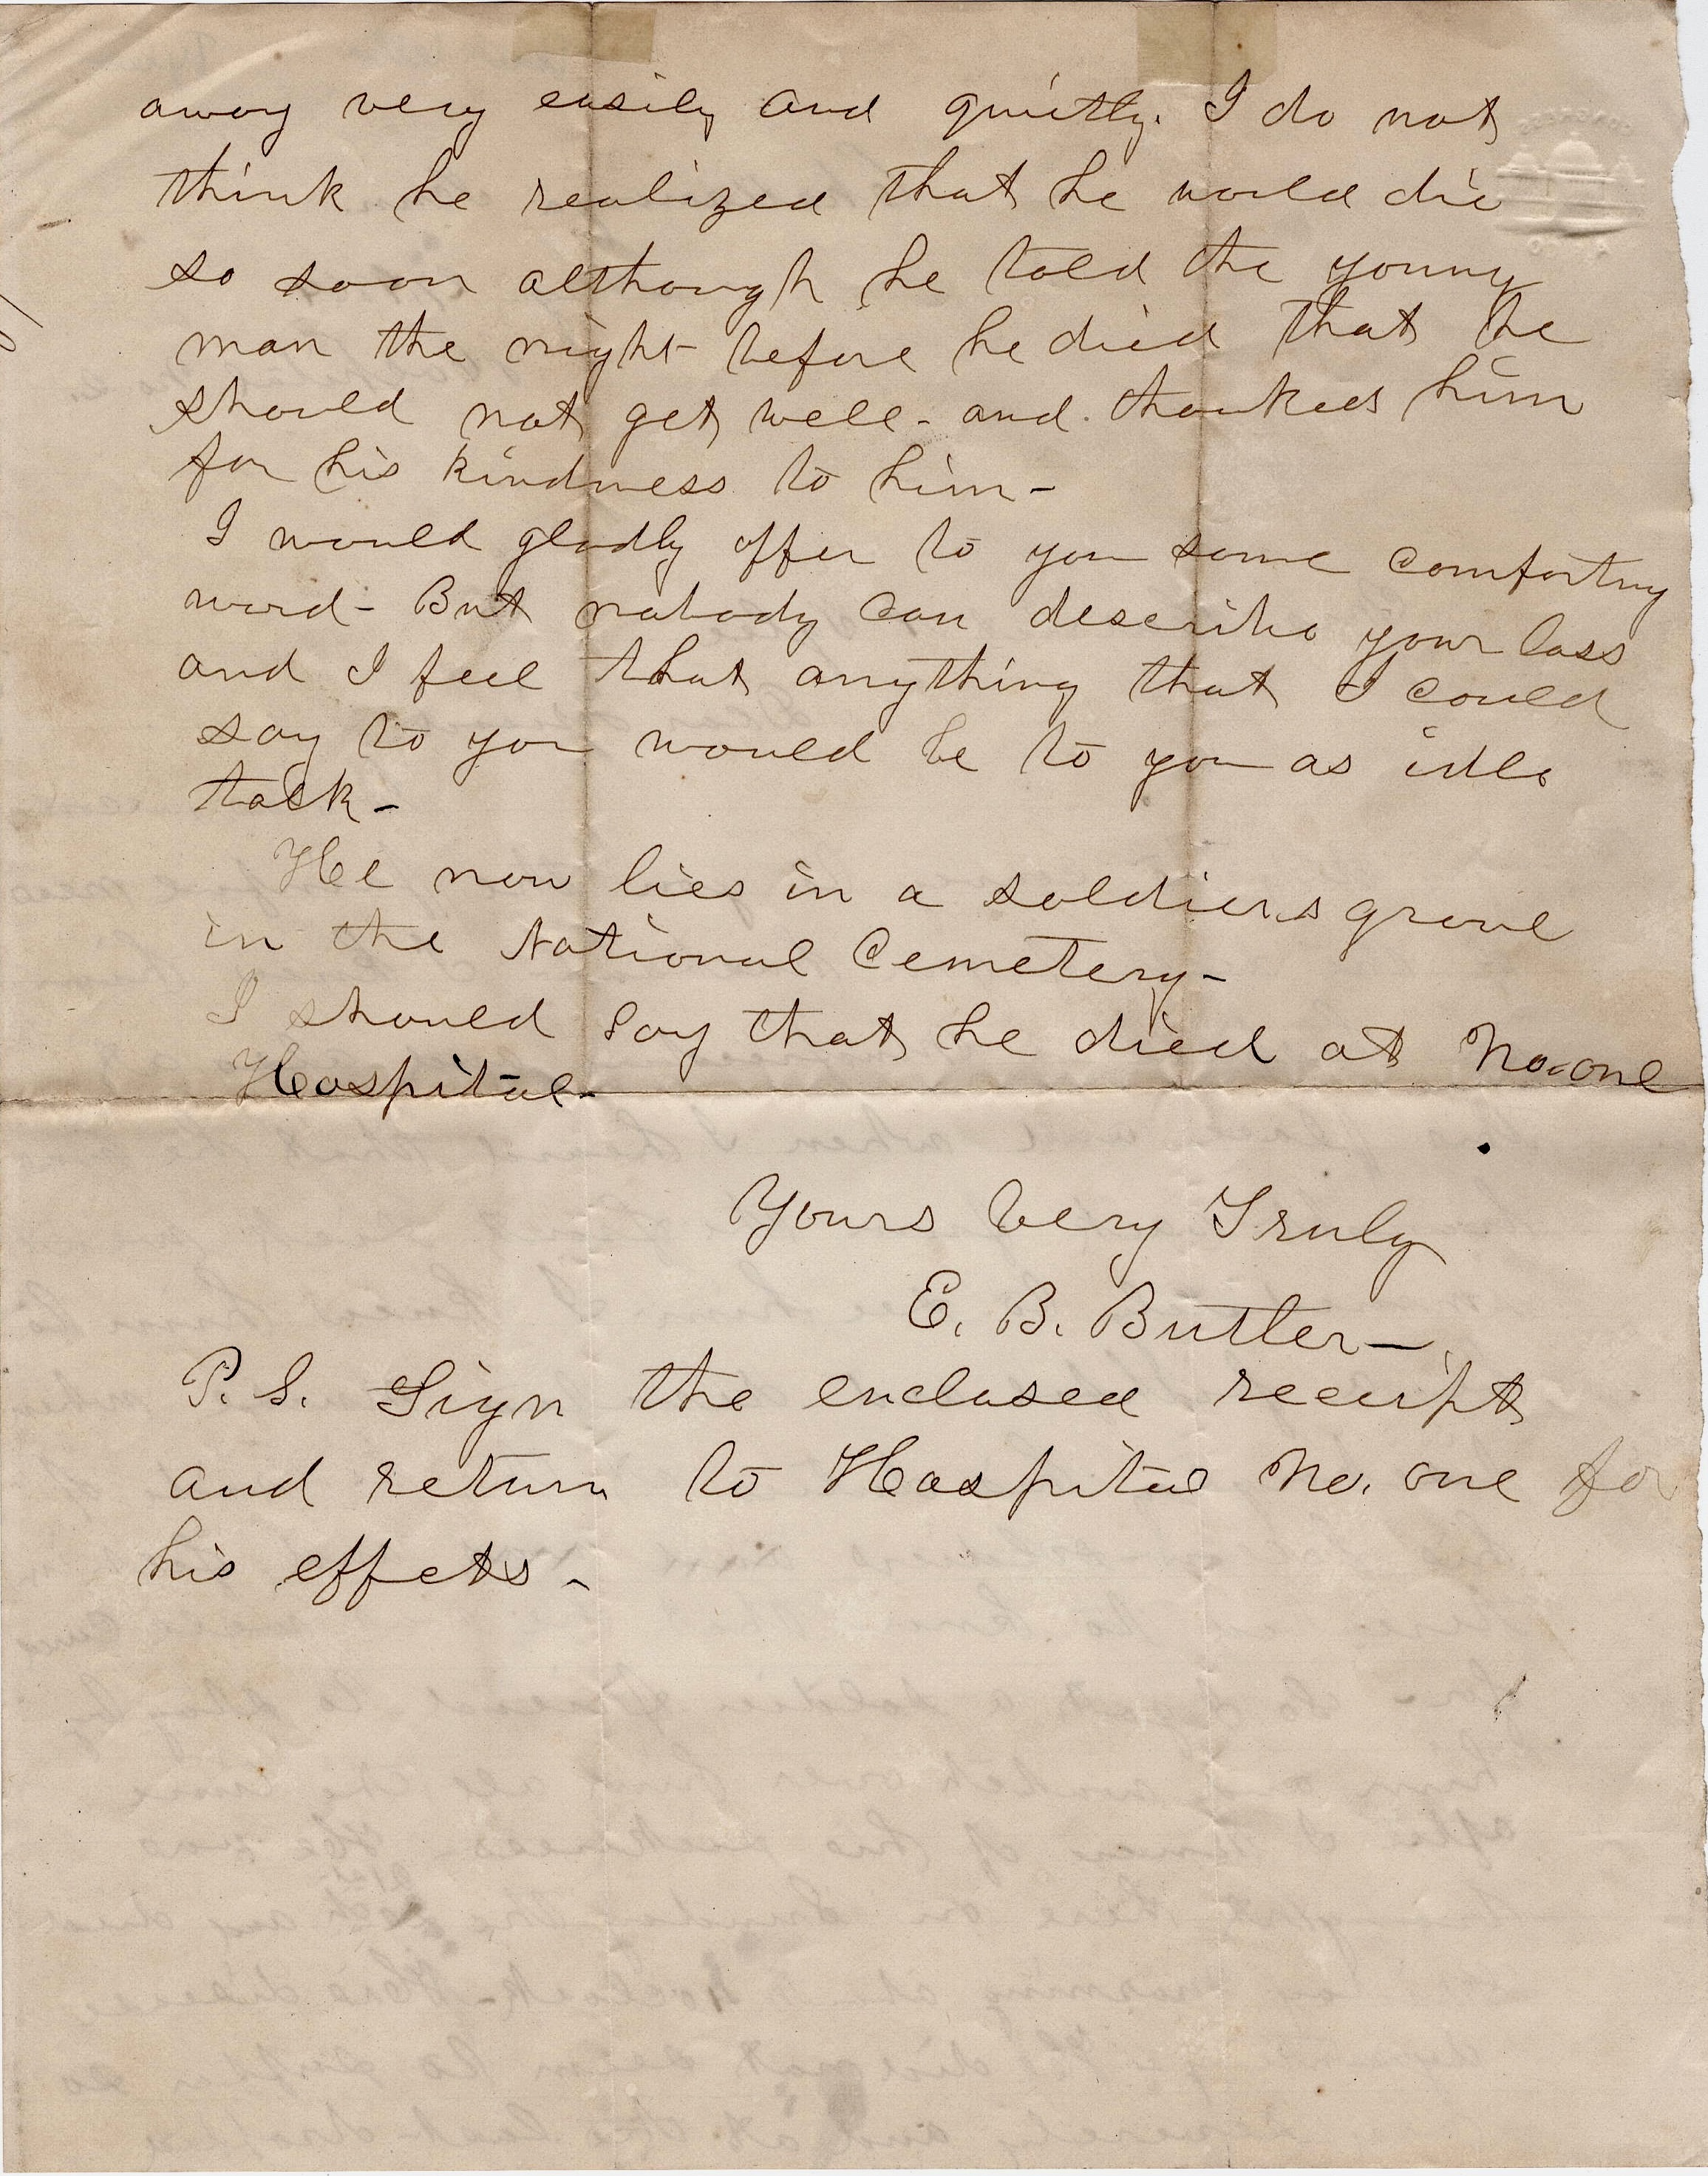 away very easily and quietly. I do not
think he realized that he would die
so soon although he told the young
man the night before he died that he
should not get well - and thanked him
for his kindness to him -
I would gladly offer to you some comforting
word - But nobody can describe your loss
and I feel that anything that I could
say to you would be to you as idle
talk -
He now lies in a soldiers grave
in the National Cemetery -
I should say that he died at No. one
Hospital -
Yours Very Truly
E. B. Butler -
P. S. Sign the enclosed receipt
and return to Hospital No. one for
his effects -